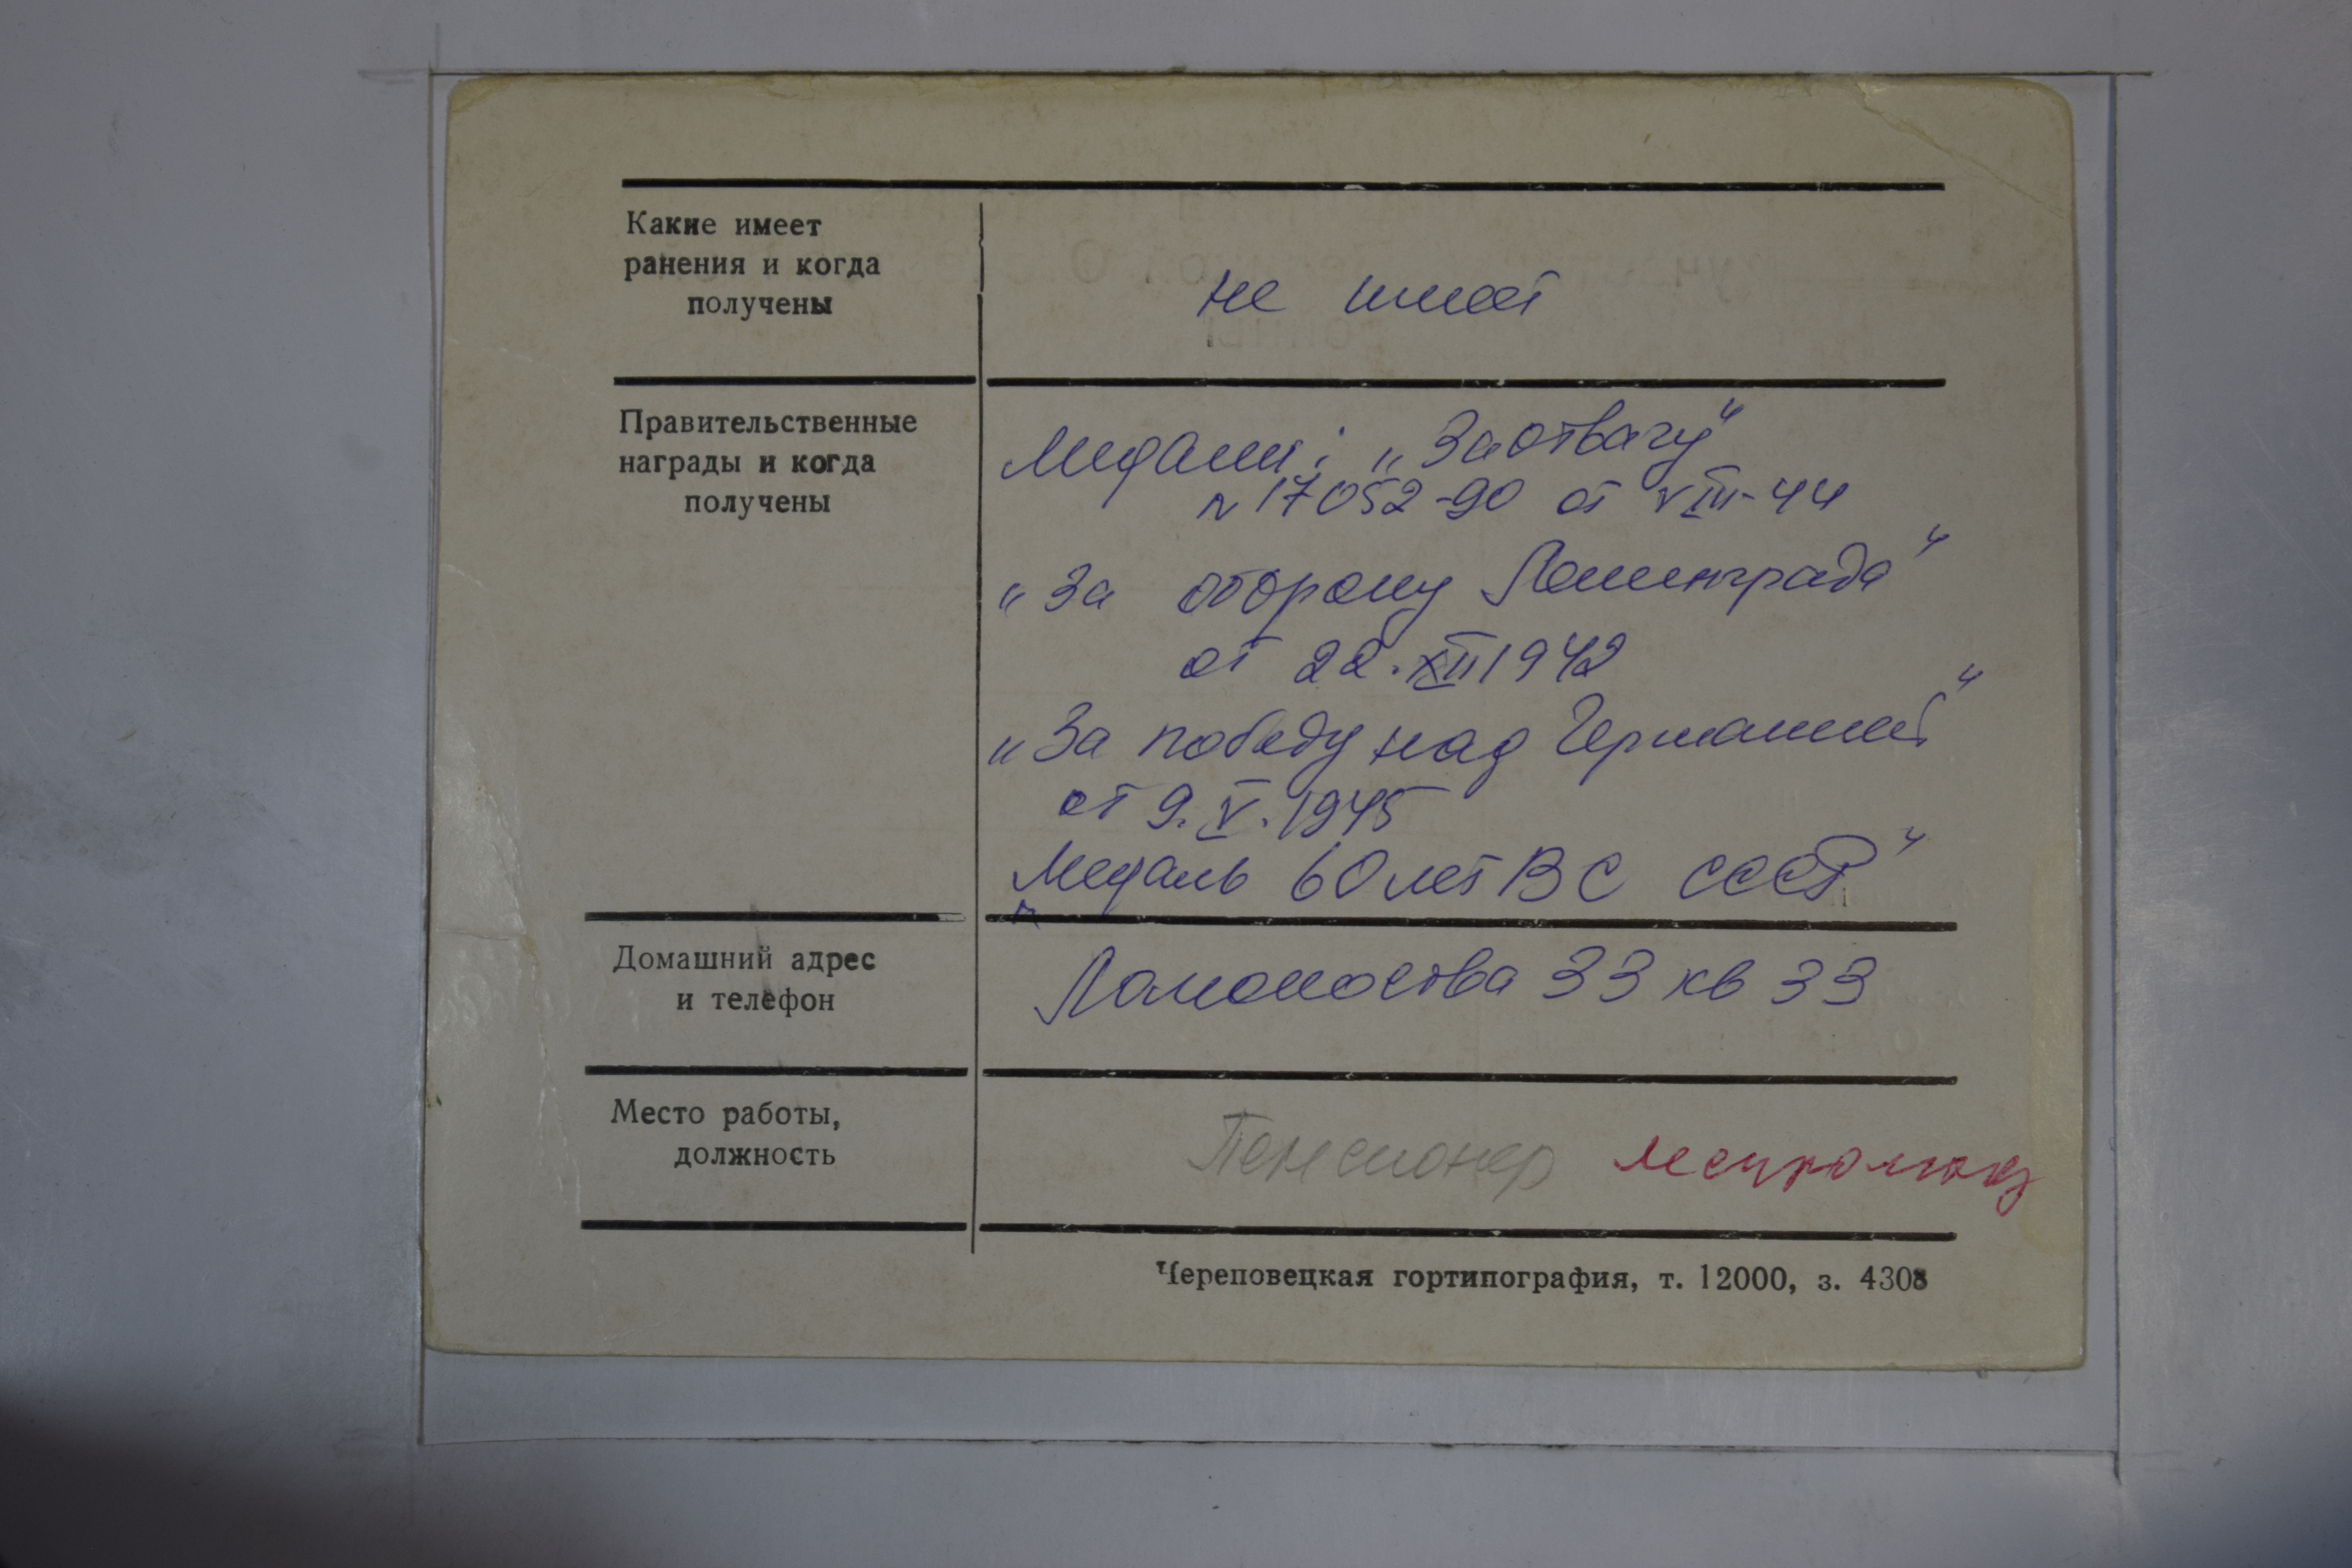 Какие имеет
ранения и когда
получены
не имеет
Правительственные
награды и когда
получены
Медали: „За отвагу"
№ 17052-90 от VIII-44
„За оборону Ленинграда"
от 22.XII 1942
„За победу над Германией"
от 9.V.1945
„Медаль 60 лет ВС СССР"
Домашний адрес
и телефон
Ломоносова 33 кв 33
Место работы,
должность
Пенсионер
Череповецкая гортипография, т. 12000, з. 4308